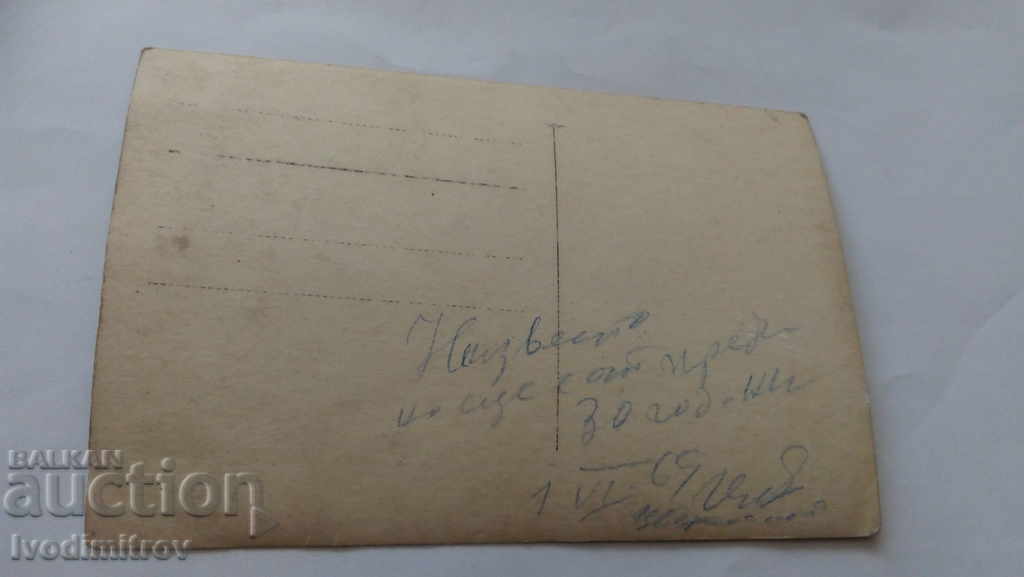 Неизвестно
лице от преди
30 години
1 VI 69
BALKAN
auction
Ivodimitrov